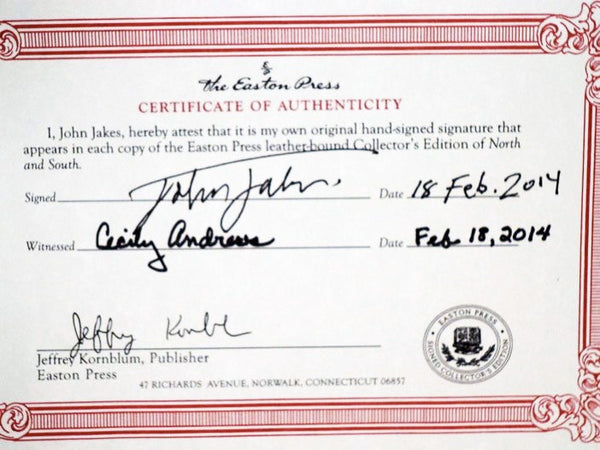 the Easton Press
CERTIFICATE OF AUTHENTICITY
I, John Jakes, hereby attest that it is my own original hand-signed signature that
appears in each copy of the Easton Press leather-bound Collector's Edition of North
and South.
Signed John Jakes Date 18 Feb. 2014
Witnessed Cecily Andrews Date Feb 18, 2014
Jeffrey Kornbl
Jeffrey Kornblum, Publisher
Easton Press
47 RICHARDS AVENUE, NORWALK, CONNECTICUT 06857
EASTON PRESS
SIGNED COLLECTOR'S EDITION